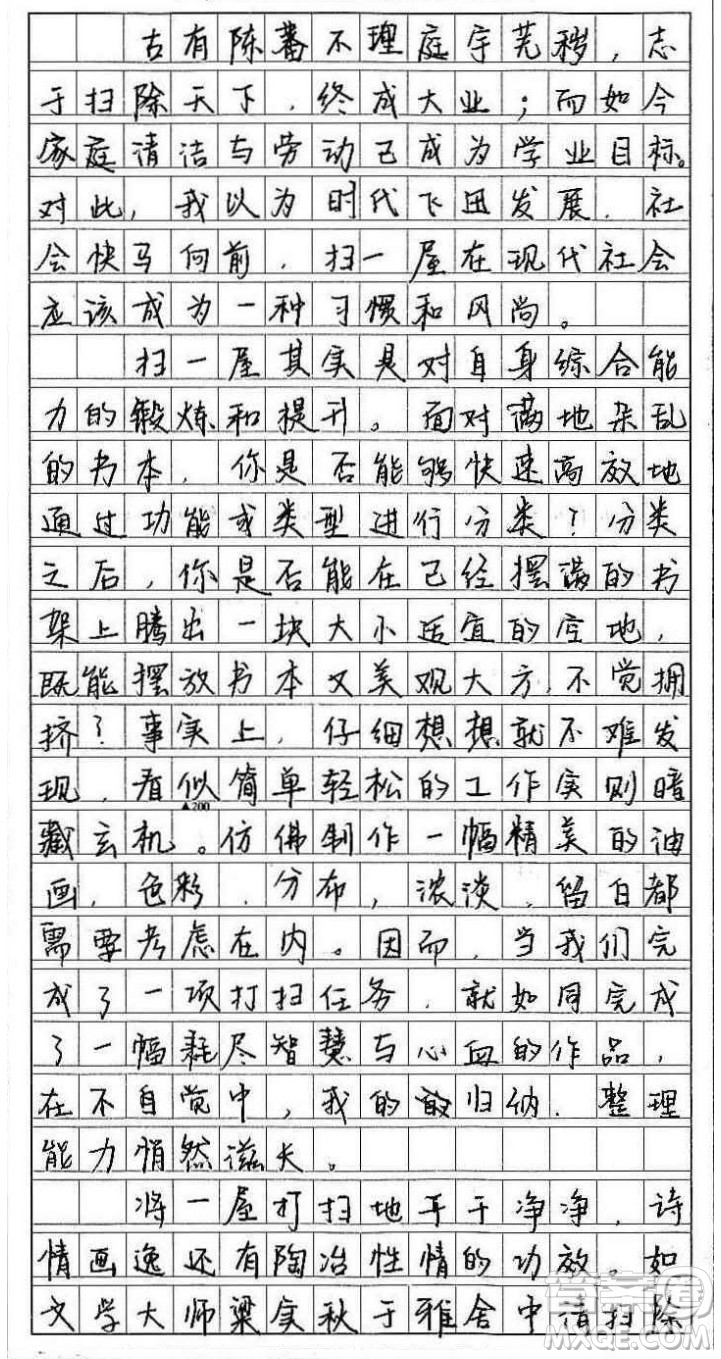 古有陈蕃不理庭宇芜秽，志
于扫除天下，终成大业；而如今
家庭清洁与劳动已成为学业目标。
对此，我以为时代飞迅发展，社
会快马向前，扫一屋在现代社会
应该成为一种习惯和风尚。
扫一屋其实是对自身综合能
力的锻炼和提升。面对满地杂乱
的书本，你是否能够快速高效地
通过功能或类型进行分类？分类
之后，你是否能在已经摆满的书
架上腾出一块大小适宜的空地，
既能摆放书本又美观大方，不觉拥
挤？事实上，仔细想想就不难发
现，看似简单轻松的工作实则暗
▲200
藏玄机。仿佛制作一幅精美的油
画，色彩，分布，浓淡，留白都
需要考虑在内。因而，当我们完
成了一项打扫任务，就如同完成
了一幅耗尽智慧与心血的作品，
在不自觉中，我的归纳、整理
能力悄然滋长。
将一屋打扫地干干净净，诗
情画逸还有陶冶性情的功效。如
文学大师梁实秋于雅舍中清扫除
答案圈
MXQE.COM